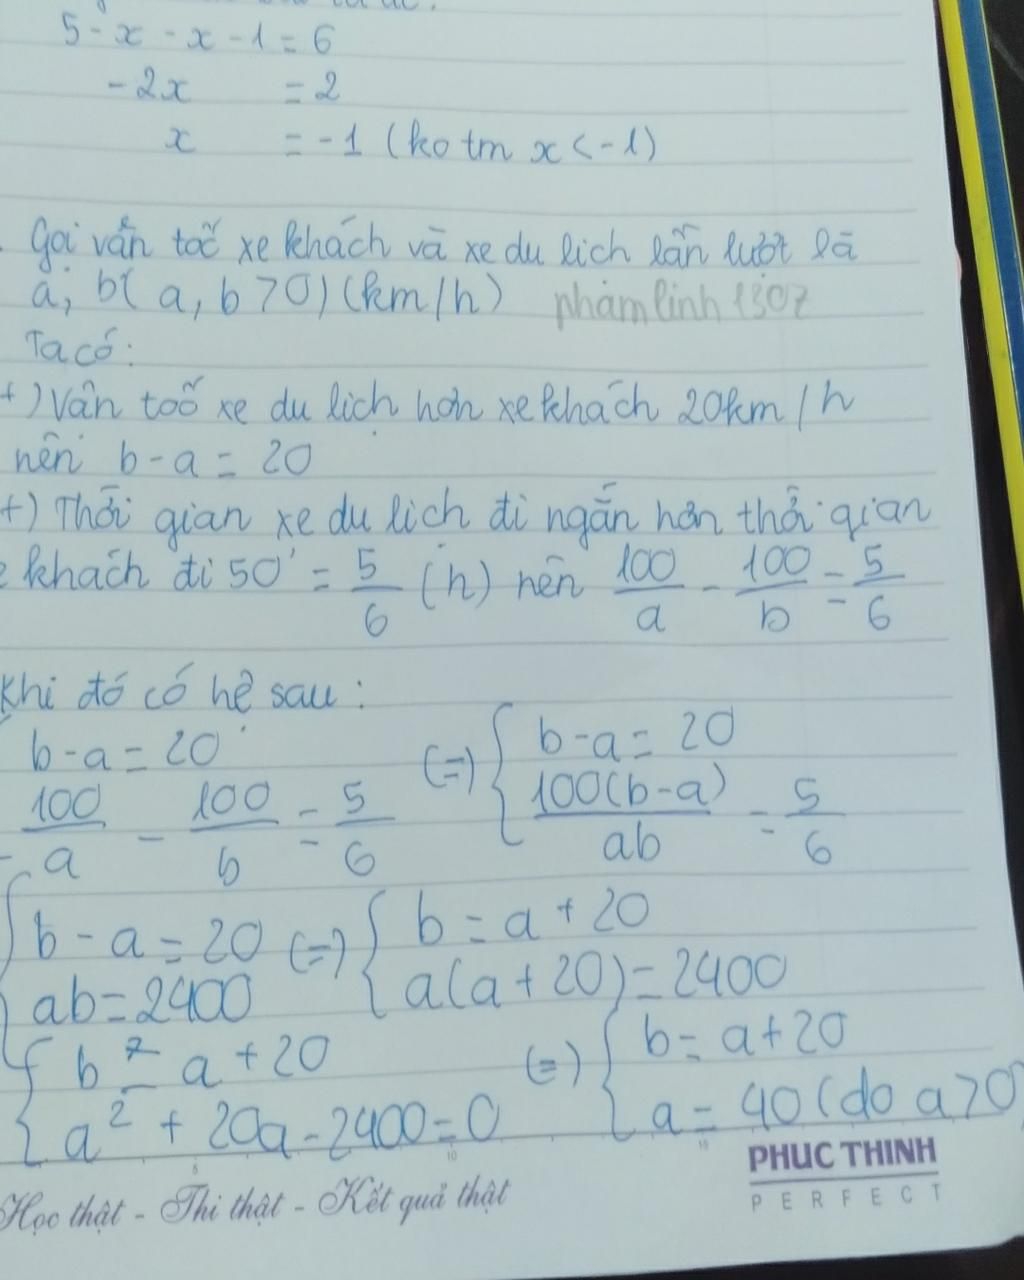 5 - x - x - 1 = 6
- 2x = 2
x = - 1 (ko tm x < - 1)
Gọi vẫn tốc xe khách và xe du lịch lần lượt là
a, b( a, b > 0) (km/h) phạmlinh1307
Ta có:
+) Vân tốc xe du lịch hơn xe khách 20km/h
nên b - a = 20
+) Thời gian xe du lịch đi ngắn hơn thời gian
khách đi 50' = 5/6 (h) nên 100/a - 100/b = 5/6
Khi đó có hệ sau:
b - a = 20 (=) { b - a = 20
100/a - 100/b = 5/6 100(b-a)/ab = 5/6
{ b - a = 20 (=) { b = a + 20
ab = 2400 a(a + 20) = 2400
{ b = a + 20 (=) { b = a + 20
a² + 20a - 2400 = 0 a = 40 (do a > 0)
PHUC THINH
PERFECT
Học thật - Thi thật - Kết quả thật